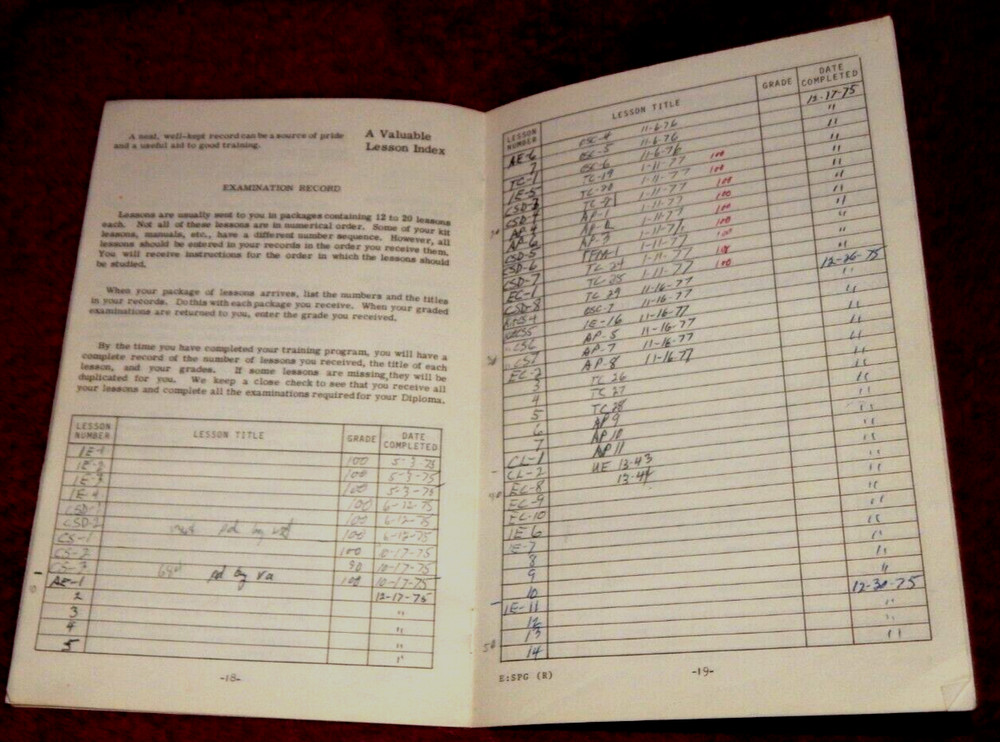 A neat, well-kept record can be a source of pride
and a useful aid to good training.
A Valuable
Lesson Index
EXAMINATION RECORD
Lessons are usually sent to you in packages containing 12 to 20 lessons
each. Not all of these lessons are in numerical order. Some of your kit
lessons, manuals, etc., have a different number sequence. However, all
lessons should be entered in your records in the order you receive them.
You will receive instructions for the order in which the lessons should
be studied.
When your package of lessons arrives, list the numbers and the titles
in your records. Do this with each package you receive. When your graded
examinations are returned to you, enter the grade you received.
By the time you have completed your training program, you will have a
complete record of the number of lessons you received, the title of each
lesson, and your grades. If some lessons are missing, they will be
duplicated for you. We keep a close check to see that you receive all
your lessons and complete all the examinations required for your Diploma.
LESSON NUMBER LESSON TITLE GRADE DATE COMPLETED
IE-1
IE-2 100 5-3-75
IE-3 100 5-3-75
IE-4 100 5-3-75
CSD-1 100 6-12-75
CSD-2 100 6-12-75
CS-1 pd by 6-12-75
CS-2 100 10-17-75
CS-3 90 10-17-75
AE-1 pd by va 100 10-17-75
2 12-17-75
3 "
4 "
5 "
-18-
LESSON NUMBER LESSON TITLE GRADE DATE COMPLETED
12-17-75
AE-6 OSC-4 11-6-76 "
7 OSC-5 11-6-76 "
TC-1 OSC-6 11-6-76 "
IE-5 TC-19 1-11-77 100 "
TC-20 1-11-77 100 "
TC-21 1-11-77 100 "
AP-1 1-11-77 100 "
AP-6 AP-2 1-11-77 100 "
CSD-5 AP-3 1-11-77 100 "
CSD-6 1-11-77 100 12-26-75
CSD-7 TC 24 1-11-77 100 "
EC-1 TC 25 1-11-77 "
CSD-8 TC 29 11-16-77 "
OSC-7 11-16-77 "
IE-16 11-16-77 "
CS6 AP-5 11-16-77 "
CS7 AP-7 11-16-77 "
EC-2 AP-8 11-16-77 "
3 TC 26 "
4 TC 27 "
5 TC 28 "
6 AP 9 "
7 AP 10 "
CL-1 AP 11 "
CL-2 UE 13-43 "
EC-8 13-44 "
EC-9 "
EC-10 "
IE-6 "
IE-7 "
8 "
9 "
10 12-30-75
IE-11 "
12 "
13 "
14
E:SPG (R)
-19-